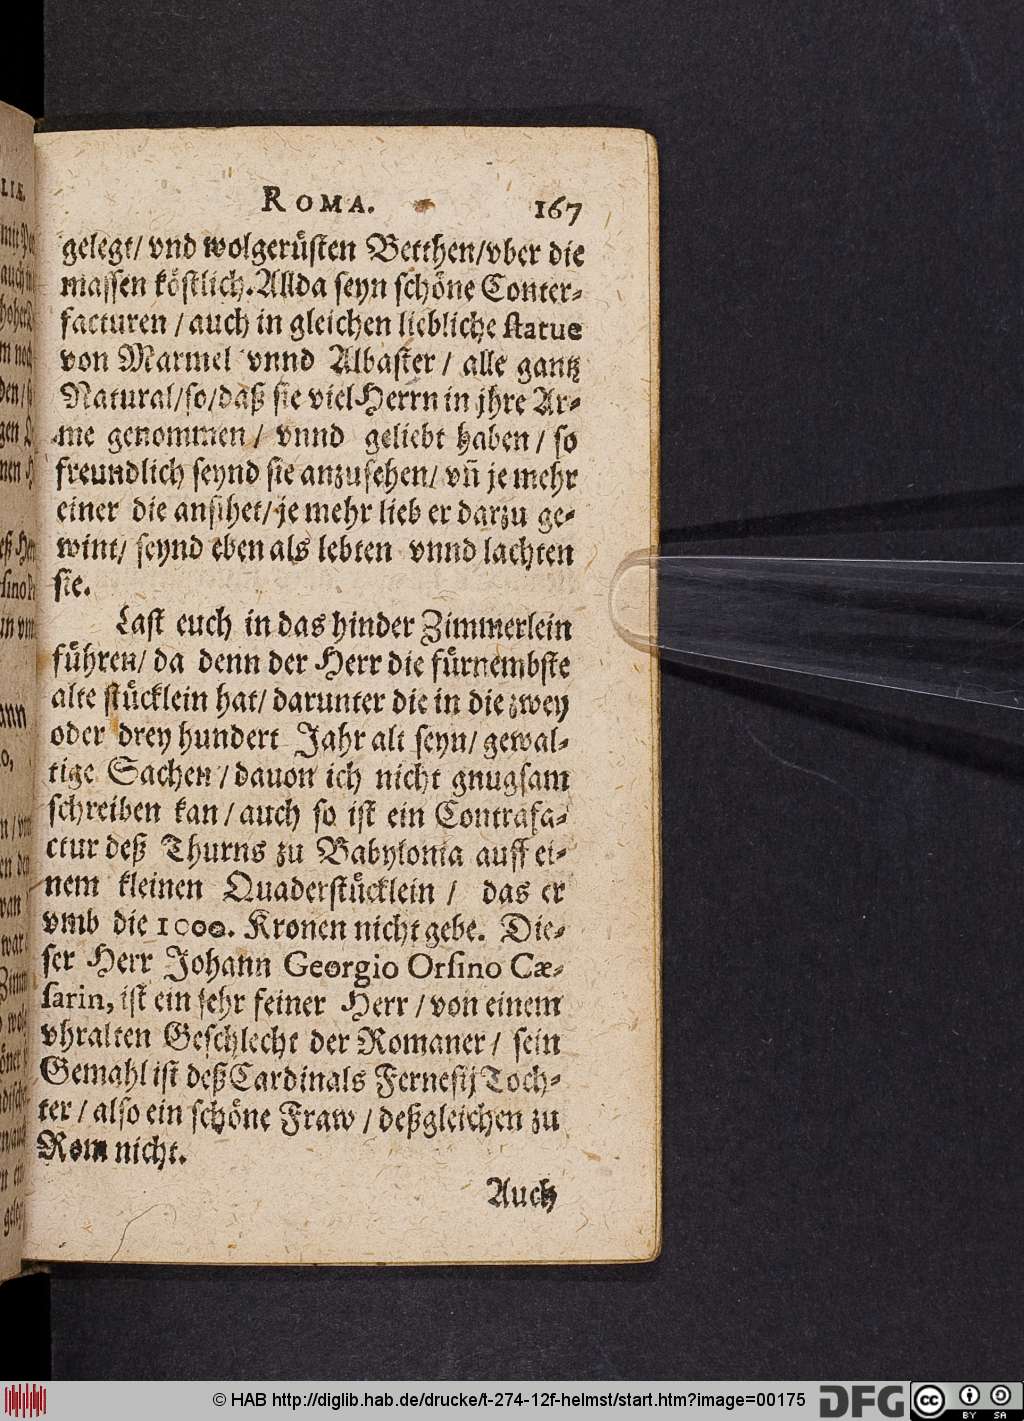 ROMA. 167
gelegt/ vnd wolgerüsten Betthen/vber die
massen köstlich. Allda seyn schöne Conter-
facturen / auch in gleichen liebliche statue
von Marmel vnnd Albaster / alle gantz
Natural/so/daß sie viel Herrn in jhre Ar-
me genommen / vnnd geliebt haben / so
freundlich seynd sie anzusehen/ vñ je mehr
einer die ansihet/ je mehr lieb er darzu ge-
wint/ seynd eben als lebten vnnd lachten
sie.
Last euch in das hinder Zimmerlein
führen/ da denn der Herr die fürnembste
alte stücklein hat/ darunter die in die zwey
oder drey hundert Jahr alt seyn/ gewal-
tige Sachen / dauon ich nicht gnugsam
schreiben kan / auch so ist ein Contrafa-
ctur deß Thurns zu Babylonia auff ei-
nem kleinen Quaderstücklein / das er
vmb die 1000. Kronen nicht gebe. Die-
ser Herr Johann Georgio Orsino Cæ-
sarin, ist ein sehr feiner Herr / von einem
vhralten Geschlecht der Romaner / sein
Gemahl ist deß Cardinals Fernesij Toch-
ter / also ein schöne Fraw / deßgleichen zu
Rom nicht.
Auch
© HAB http://diglib.hab.de/drucke/t-274-12f-helmst/start.htm?image=00175 DFG cc BY SA